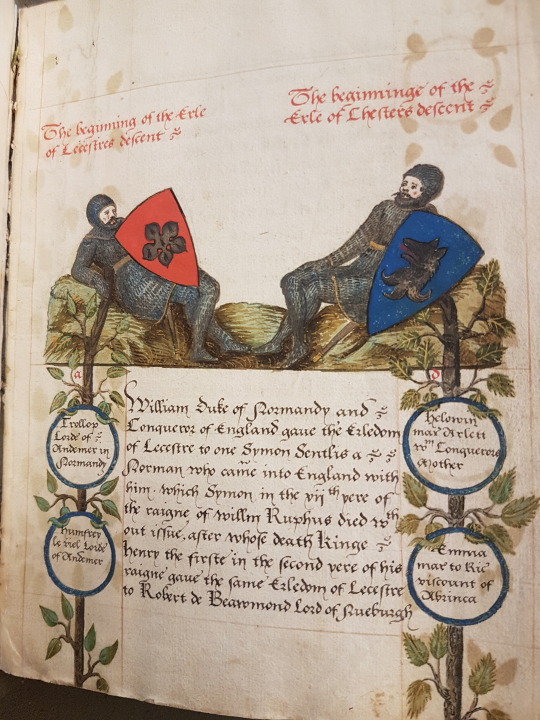 The beginning of the Erle
of Lecestres descent
The beginninge of the
Erle of Chesters descent
a
b
Trollop
Lorde of
Andemer in
Normandy
Humfrey
le viel Lorde
of Andemer
William Duke of Normandy and
Conqueror of England gaue the Erledom
of Lecestre to one Symon Sentlis a
Norman who came into England with
him. which Symon in the vijth yere of
the raigne of Willm Ruphus died wth
out issue, after whose death Kinge
Henry the firste in the second yere of his
raigne gaue the same Erledom of Lecestre
to Robert de Beawmond Lord of Nueburgh
Helowin
mar Arlett
wm Conquerors
Mother
Emma
mar to Ric
viscount of
Abrinca